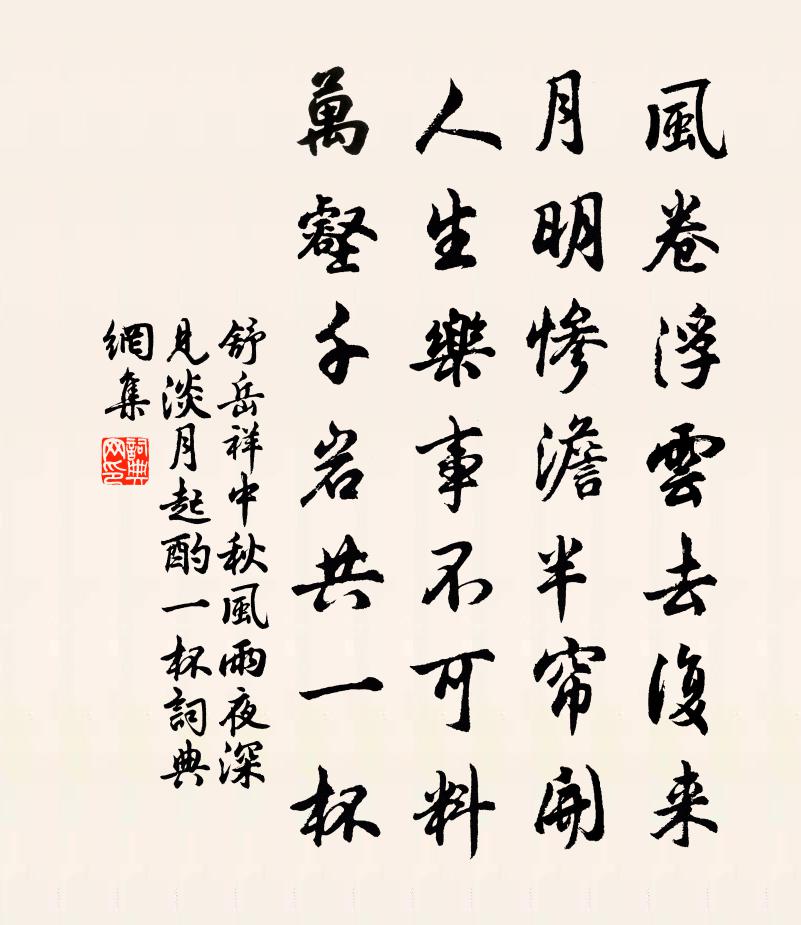 風卷浮雲去復来
月明慘澹半帘開
人生樂事不可料
萬壑千岩共一杯
舒岳祥中秋風雨夜深
見淡月起酌一杯詞典
網集
詞典
网印